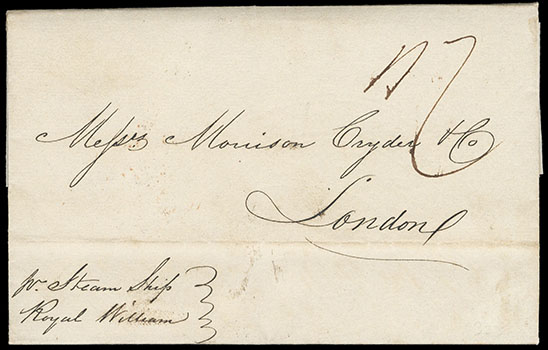 Messrs Morrison Cryder & Co
London
pr. Steam Ship
Royal William